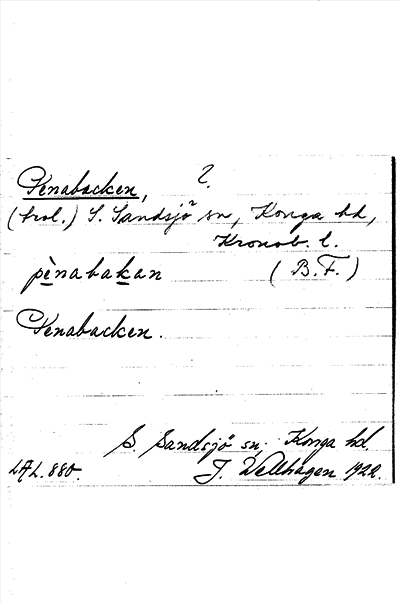 Penabacken, 2.
(trol.) S. Sandsjö sn, Konga hd,
Kronob. l.
pènabakan (B.F.)
Penabacken.
S. Sandsjö sn, Konga hd.
LAL. 880. J. Wellhagen 1922.